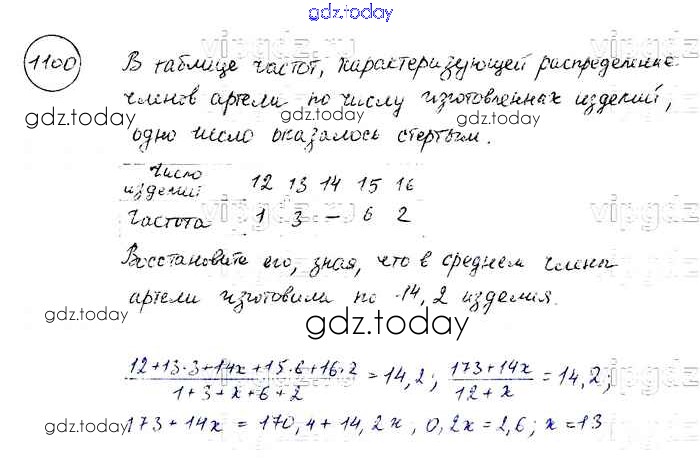 gdz.today
1100
В таблице частот, характеризующей распределение
членов артели по числу изготовленных изделий,
одно число оказалось стертым.
Число изделий 12 13 14 15 16
Частота 1 3 — 6 2
Восстановите его, зная, что в среднем члены
артели изготовили по 14,2 изделия.
(12+13·3+14x+15·6+16·2)/(1+3+x+6+2) = 14,2; (173+14x)/(12+x) = 14,2;
173+14x = 170,4+14,2x, 0,2x = 2,6; x=13
gdz.today
gdz.today
gdz.today
gdz.today
gdz.today
gdz.today
vipgdz
vipgdz
vipgdz
vipgdz
vipgdz